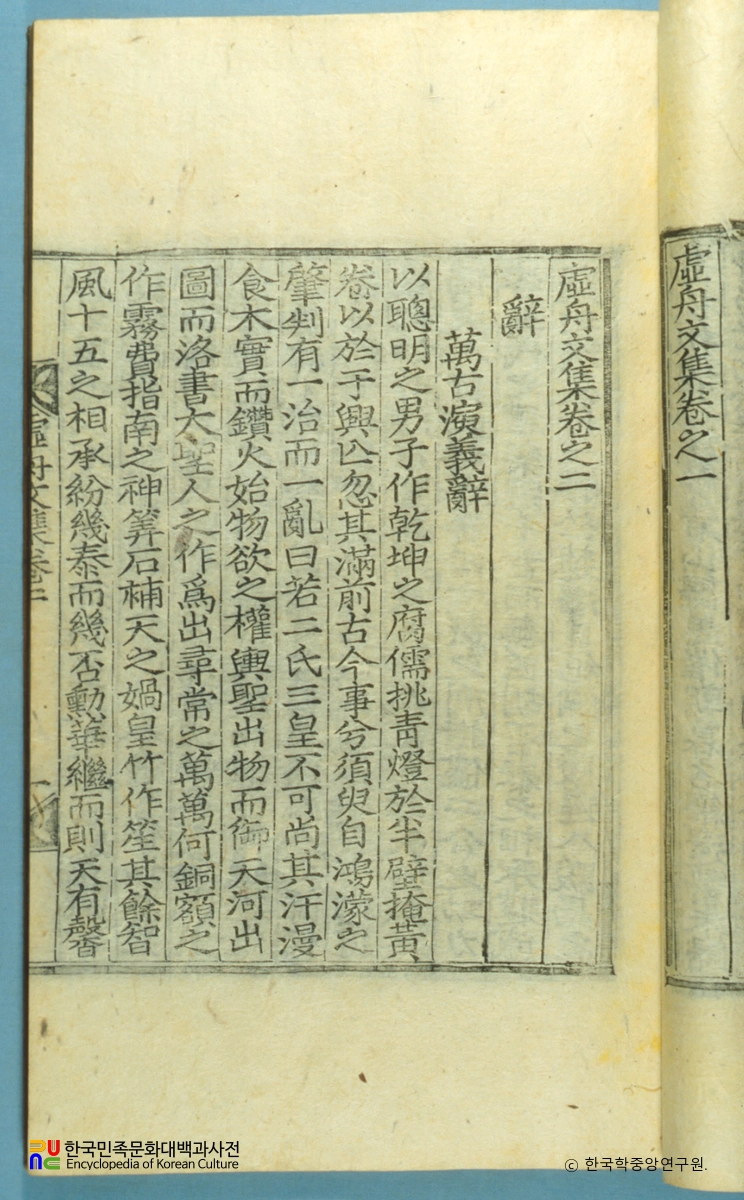 虛舟文集卷之一
虛舟文集卷之二
辭
萬古演義辭
以聰明之男子作乾坤之腐儒挑靑燈於半壁掩黃
卷以於于興亾忽其滿前古今事兮須臾自鴻濛之
肇判有一治而一亂曰若二氏三皇不可尚其汗漫
食木實而鑽火始物欲之權輿聖出物而御天河出
圖而洛書大聖人之作爲出尋常之萬萬何銅額之
作霧費指南之神筭石補天之媧皇竹作笙其餘智
風十五之相承紛幾泰而幾否勳華繼而則天有馨
虛舟文集卷二
一
한국민족문화대백과사전
Encyclopedia of Korean Culture
© 한국학중앙연구원.